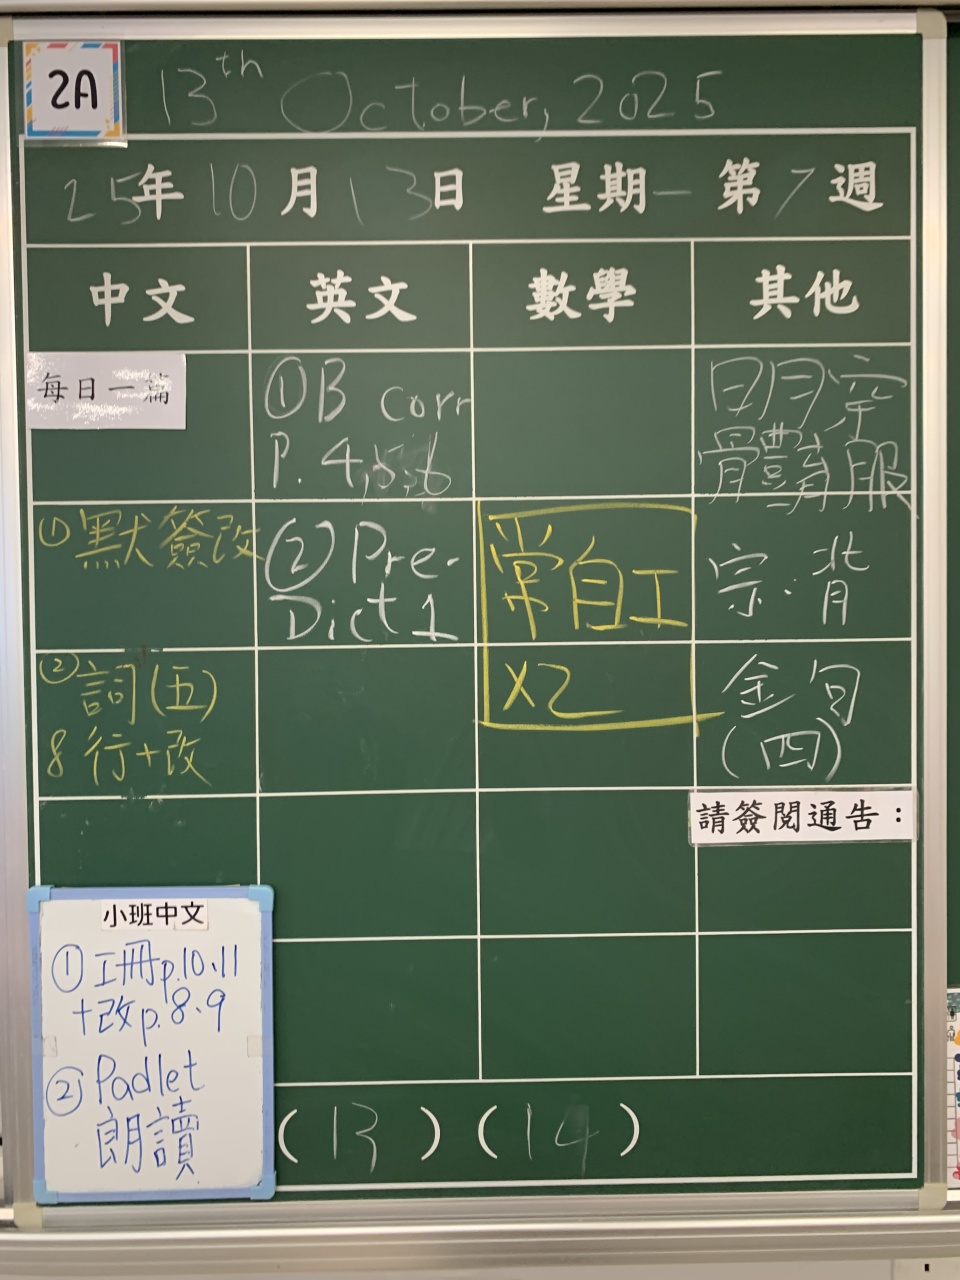 2A
13th October, 2025
25年10月13日 星期一 第7週
中文 英文 數學 其他
每日一篇
①默簽改
②詞(五)
8行+改
①B corr
P. 4,5,6
②Pre-
Dict 1
常自工
x2
明日穿
體育服
宗.背
金句
(四)
請簽閱通告：
小班中文
①工冊p.10、11
+改p.8、9
②Padlet
朗讀
(13) (14)